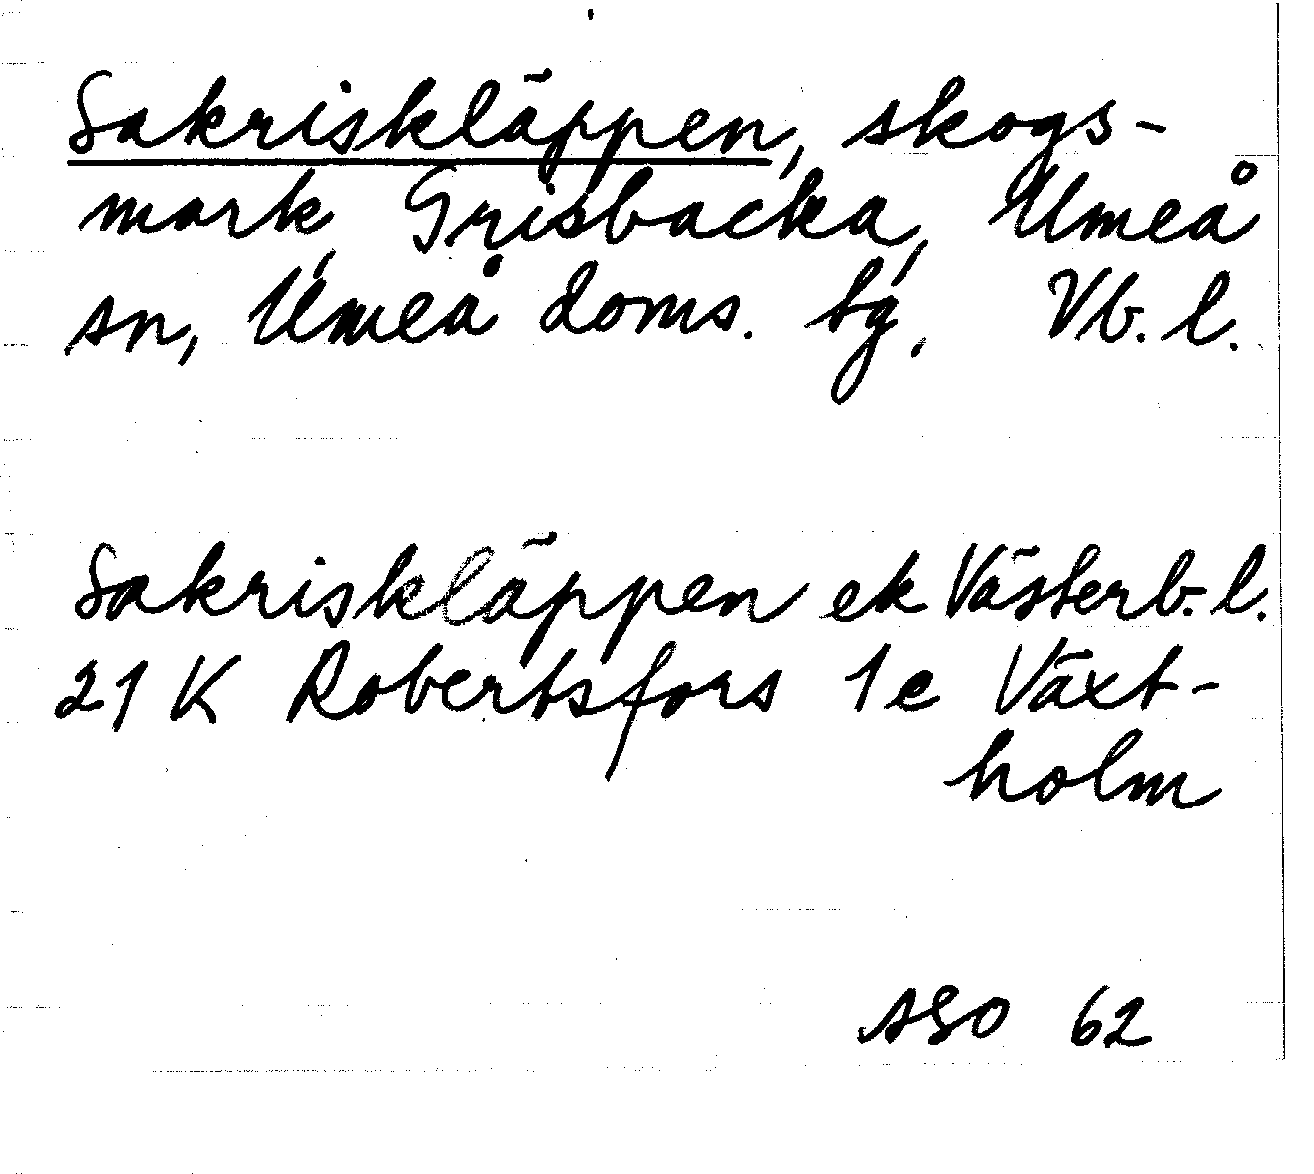 Sakriskläppen, skogs-
mark, Grisbacka, Umeå
sn, Umeå doms. tg. Vb. l.
Sakriskläppen ek Västerb. l.
21 K Robertsfors 1e Växt-
holm
ASO 62